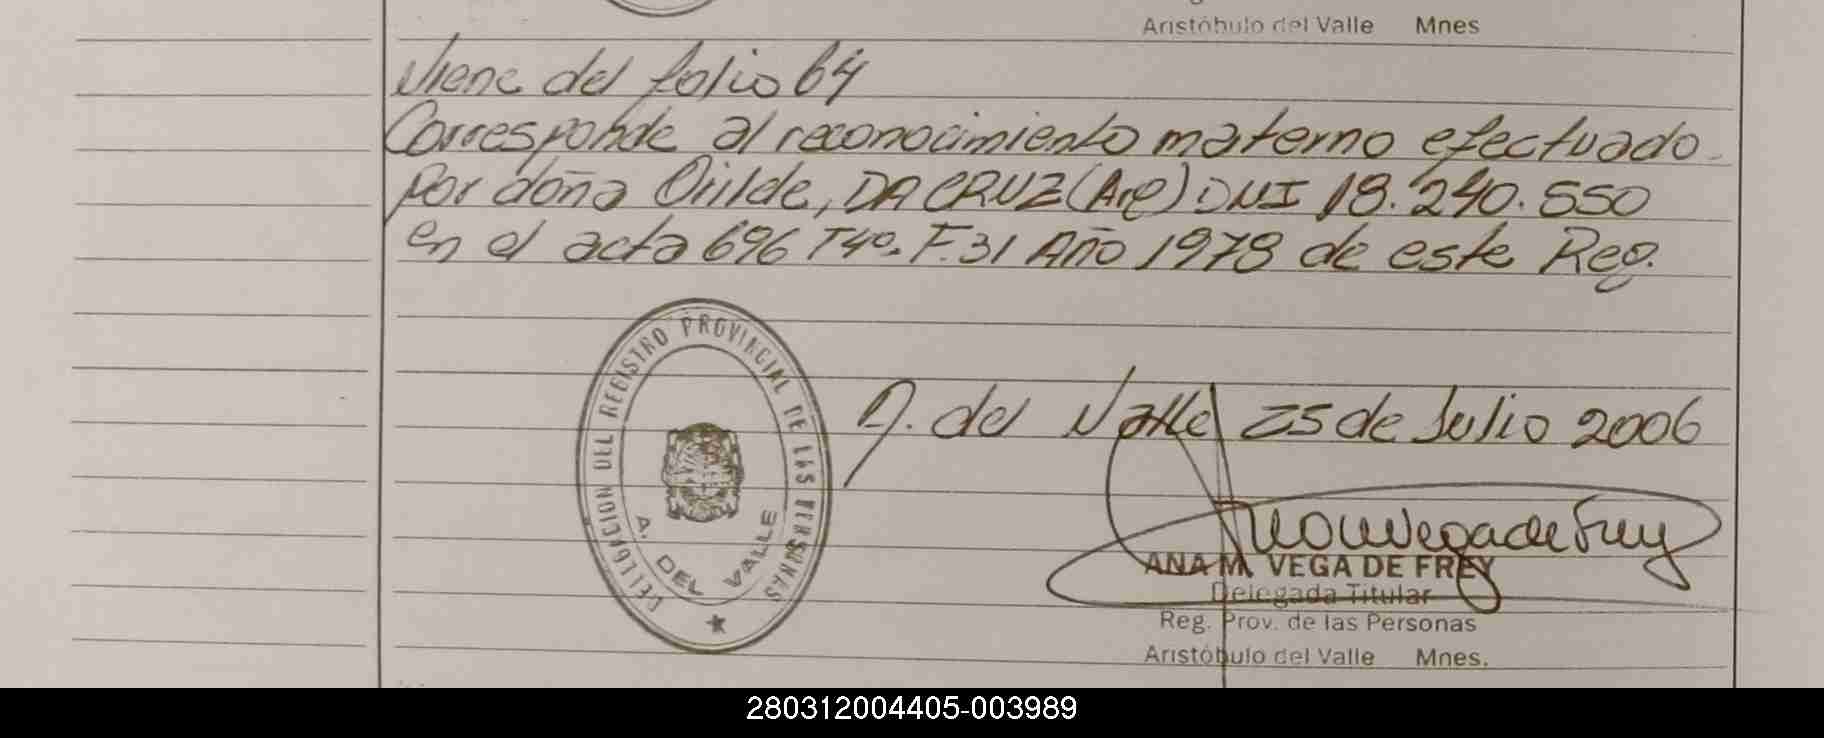 Aristóbulo del Valle Mnes
Viene del folio 64
Corresponde al reconocimiento materno efectuado
Por doña Oilde, DA CRUZ (Arg) DNI 18.240.550
en el acta 696 T4º. F.31 Año 1978 de este Reg.
DELEGACION DEL REGISTRO PROVINCIAL DE LAS PERSONAS
A. DEL VALLE
A. del Valle 25 de Julio 2006
ANA M. VEGA DE FREY
Delegada Titular
Reg. Prov. de las Personas
Aristóbulo del Valle Mnes.
280312004405-003989